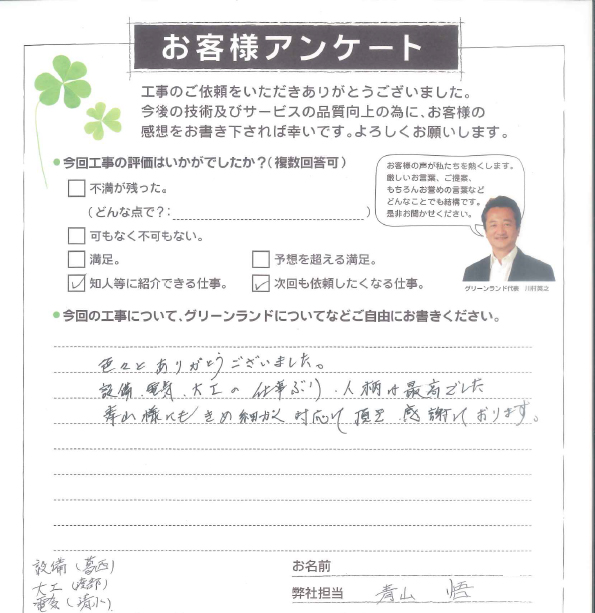 お客様アンケート
工事のご依頼をいただきありがとうございました。
今後の技術及びサービスの品質向上の為に、お客様の
感想をお書き下されば幸いです。よろしくお願いします。
●今回工事の評価はいかがでしたか？(複数回答可)
不満が残った。
(どんな点で？: )
可もなく不可もない。
満足。 予想を超える満足。
知人等に紹介できる仕事。 次回も依頼したくなる仕事。
お客様の声が私たちを熱くします。
厳しいお言葉、ご提案、
もちろんお誉めの言葉など
どんなことでも結構です。
是非お聞かせください。
グリーンランド代表 川村英之
●今回の工事について、グリーンランドについてなどご自由にお書きください。
色々とありがとうございました。
設備、電気、大工の仕事ぶり、人柄は最高でした
青山様にもきめ細かく対応して頂き感謝しております。
設備(葛西)
大工(渡部)
電気(清水)
お名前
弊社担当 青山 悟